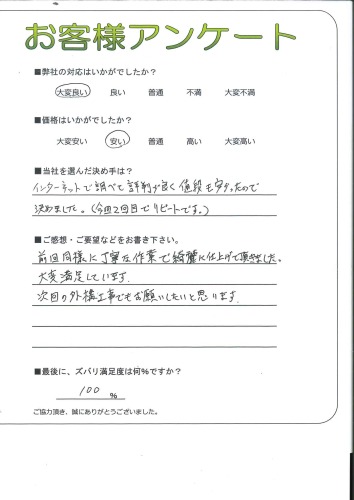 お客様アンケート
■弊社の対応はいかがでしたか？
大変良い 良い 普通 不満 大変不満
■価格はいかがでしたか？
大変安い 安い 普通 高い 大変高い
■当社を選んだ決め手は？
インターネットで調べて評判が良く値段も安かったので
決めました。(今回2回目でリピートです。)
■ご感想・ご要望などをお書き下さい。
前回同様に丁寧な作業で綺麗に仕上げて頂きました。
大変満足しています.
次回の外構工事でもお願いしたいと思います.
■最後に、ズバリ満足度は何%ですか？
100 %
ご協力頂き、誠にありがとうございました。